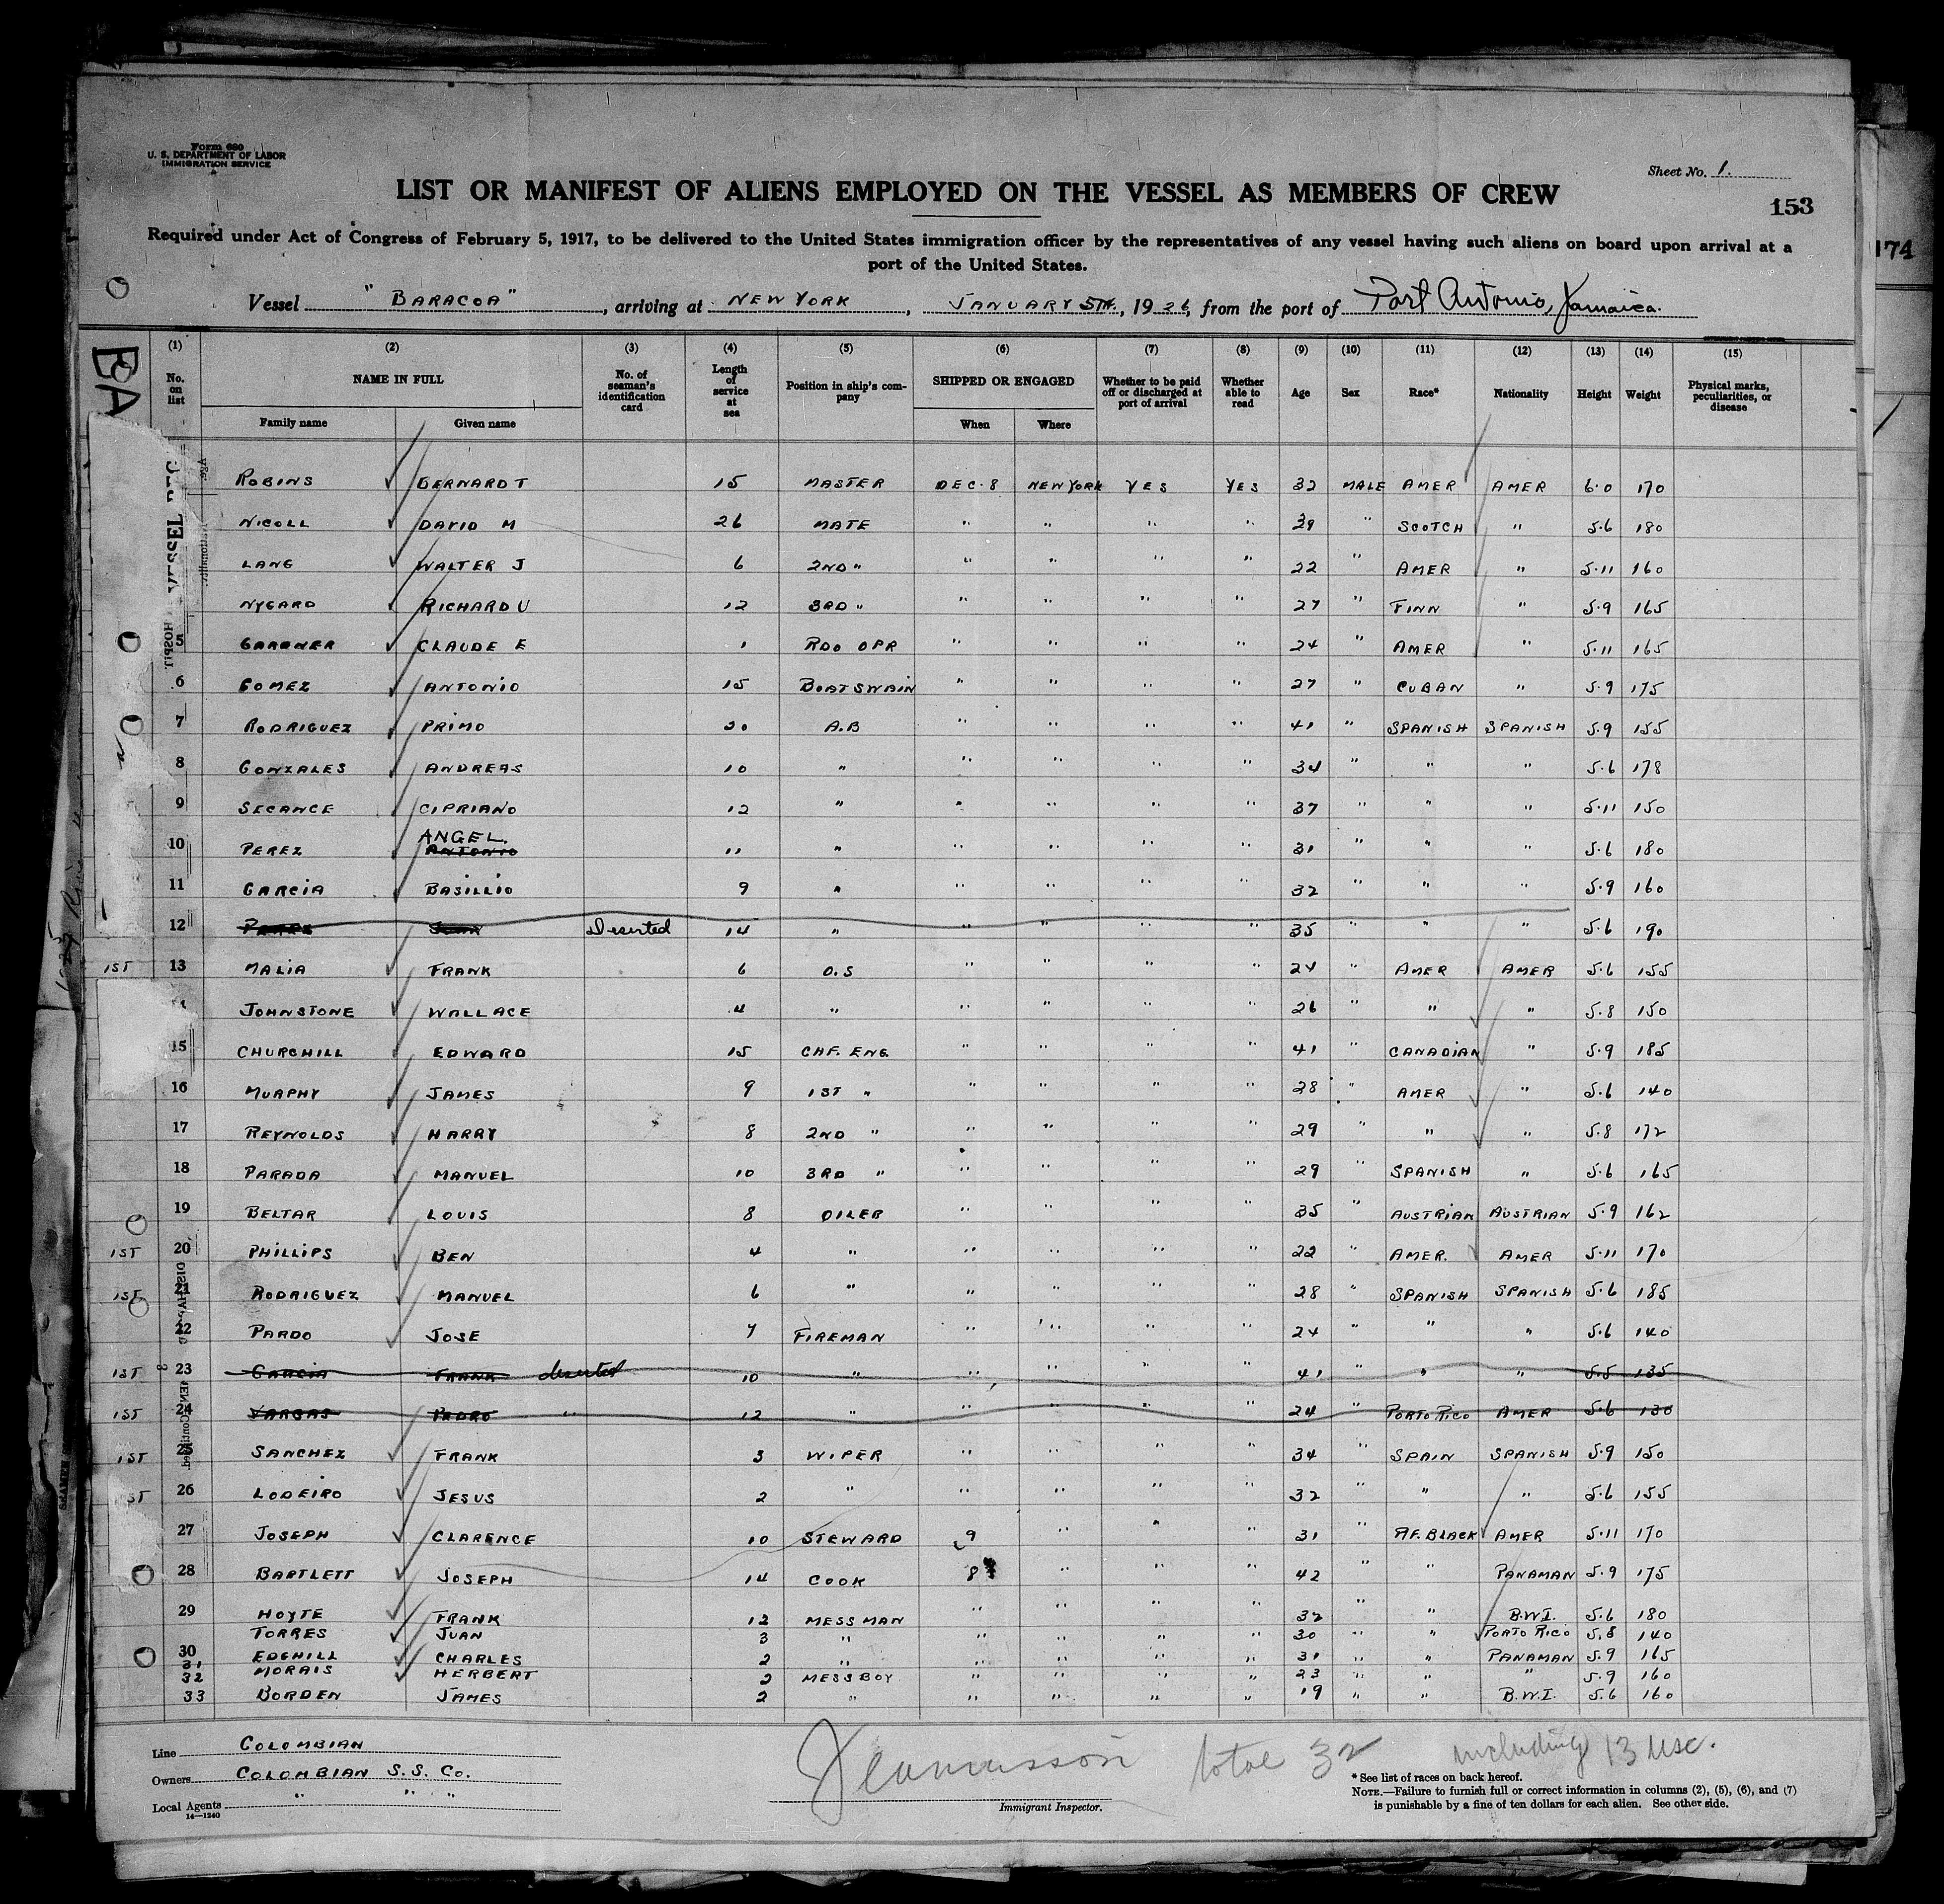 Form 680
U. S. DEPARTMENT OF LABOR
IMMIGRATION SERVICE
Sheet No. 1.
LIST OR MANIFEST OF ALIENS EMPLOYED ON THE VESSEL AS MEMBERS OF CREW
153
174
Required under Act of Congress of February 5, 1917, to be delivered to the United States immigration officer by the representatives of any vessel having such aliens on board upon arrival at a
port of the United States.
Vessel "BARACOA", arriving at NEW YORK, JANUARY 5TH., 1926, from the port of Port Antonio, Jamaica.
BA
(1) (2) (3) (4) (5) (6) (7) (8) (9) (10) (11) (12) (13) (14) (15)
No. on list NAME IN FULL No. of seaman's identification card Length of service at sea Position in ship's company SHIPPED OR ENGAGED Whether to be paid off or discharged at port of arrival Whether able to read Age Sex Race* Nationality Height Weight Physical marks, peculiarities, or disease
Family name Given name When Where
ROBINS BERNARD T 15 MASTER DEC. 8 NEW YORK YES YES 32 MALE AMER AMER 6.0 170
NICOLL DAVID M 26 MATE " " " " 39 " SCOTCH " 5.6 180
LANG WALTER J 6 2ND " " " " " 22 " AMER " 5.11 160
NYGARD RICHARD U 12 3RD " " " " " 27 " FINN " 5.9 165
5 GARDNER CLAUDE E 1 RDO OPR " " " " 24 " AMER " 5.11 165
6 GOMEZ ANTONIO 15 BOATSWAIN " " " " 27 " CUBAN " 5.9 175
7 RODRIGUEZ PRIMO 20 A.B " " " " 41 " SPANISH SPANISH 5.9 155
8 GONZALES ANDREAS 10 " " " " " 34 " " " 5.6 178
9 SECANCE CIPRIANO 12 " " " " " 37 " " " 5.11 150
10 PEREZ ANGEL ANTONIO 11 " " " " " 31 " " " 5.6 180
11 GARCIA BASILLIO 9 " " " " " 32 " " " 5.9 160
12 Deserted 14 " " " " 35 " " " 5.6 190
1ST 13 MALIA FRANK 6 O.S " " " " 24 " AMER AMER 5.6 155
JOHNSTONE WALLACE 4 " " " " " 26 " " " 5.8 150
15 CHURCHILL EDWARD 15 CHF. ENG. " " " " 41 " CANADIAN " 5.9 185
16 MURPHY JAMES 9 1ST " " " " " 28 " AMER " 5.6 140
17 REYNOLDS HARRY 8 2ND " " " " " 29 " " " 5.8 172
18 PARADA MANUEL 10 3RD " " " " " 29 " SPANISH " 5.6 165
19 BELTAR LOUIS 8 OILER " " " " 35 " AUSTRIAN AUSTRIAN 5.9 162
1ST 20 PHILLIPS BEN 4 " " " " " 22 " AMER. AMER 5.11 170
1ST 21 RODRIGUEZ MANUEL 6 " " " " " 28 " SPANISH SPANISH 5.6 185
22 PARDO JOSE 7 FIREMAN " " " " 24 " " " 5.6 140
1ST 23 GARCIA FRANK deserted 10 " " " " " 41 " " " 5.5 135
1ST 24 VARGAS PEDRO " 12 " " " " " 24 " PORTO RICO AMER 5.6 130
1ST 25 SANCHEZ FRANK 3 WIPER " " " " 34 " SPAIN SPANISH 5.9 150
1ST 26 LODEIRO JESUS 2 " " " " " 32 " " " 5.6 155
27 JOSEPH CLARENCE 10 STEWARD 9 " " " 31 " AF. BLACK AMER 5.11 170
28 BARTLETT JOSEPH 14 COOK 8 " " " 42 " " PANAMAN 5.9 175
29 HOYTE FRANK 12 MESSMAN " " " " 32 " " B.W.I. 5.6 180
TORRES JUAN 3 " " " " " 30 " " PORTO RICO 5.8 140
30 EDGHILL CHARLES 2 " " " " " 31 " " PANAMAN 5.9 165
31 MORAIS HERBERT 2 MESSBOY " " " " 23 " " " 5.9 160
32
33 BORDEN JAMES 2 " " " " " 19 " " B.W.I. 5.6 160
Line COLOMBIAN
Owners COLOMBIAN S.S. CO.
Local Agents " " "
14—1240
Immigrant Inspector.
total 32
including 13 USC.
* See list of races on back hereof.
NOTE.—Failure to furnish full or correct information in columns (2), (5), (6), and (7)
is punishable by a fine of ten dollars for each alien. See other side.